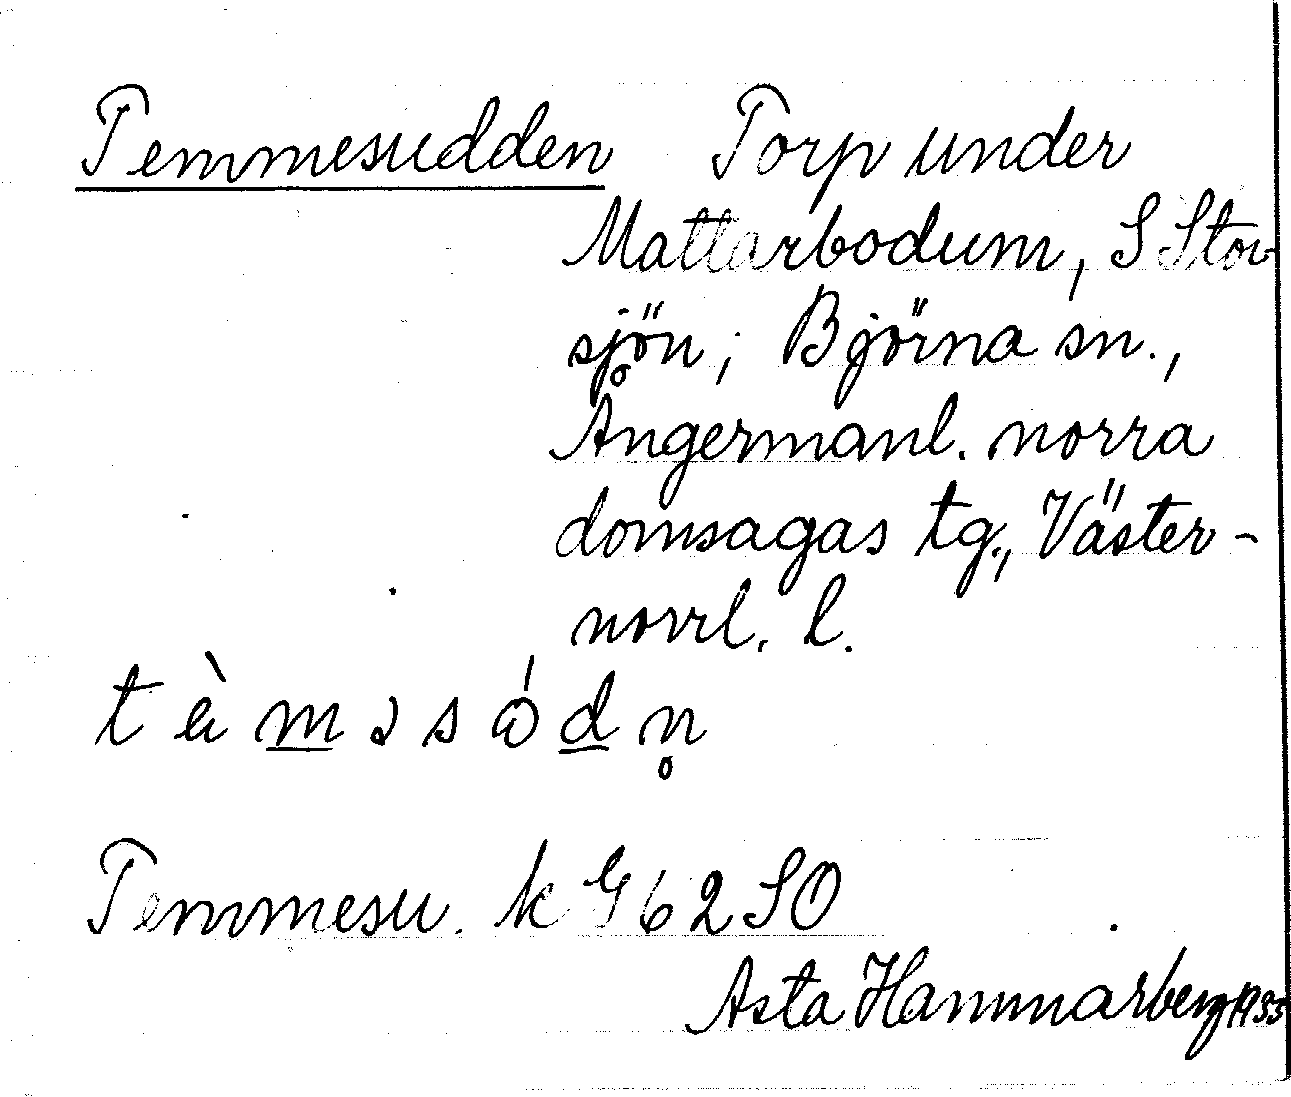 Temmesudden Torp under
Mattarbodum, S Stor-
sjön; Björna sn.,
Ångermanl. norra
domsagas tg., Väster-
norrl. l.
t è m̲ ə s ó d̲ n̥
Temmesu. k G 62 SO
Asta Hammarberg 1935